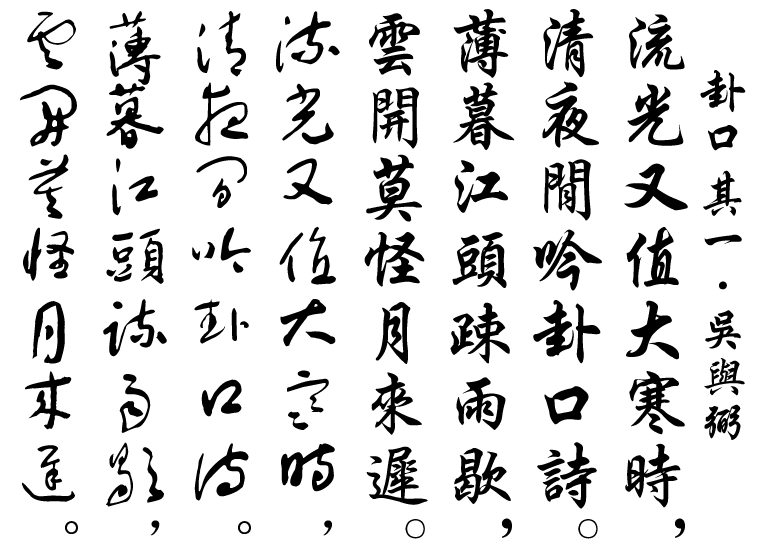 卦口 其一·吳與弼
流光又值大寒時，
清夜閒吟卦口詩。
薄暮江頭疎雨歇，
雲開莫怪月來遲。
流光又值大寒時，
清夜閒吟卦口詩。
薄暮江頭疎雨歇，
雲開莫怪月來遲。